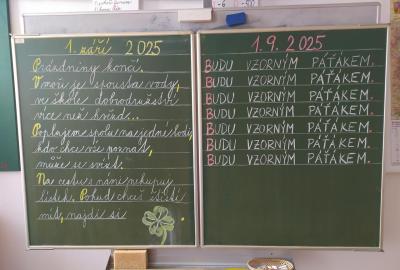 1. září 2025
Prázdniny končí.
V moři je spousta vody,
ve škole dobrodružství
více než hvězd...
Poplujeme spolu na jedné lodi,
kdo chce vše poznat,
může se svézt.
Na cestu s námi nekupuj
lístek. Pokud chceš štěstí
mít, najdi si
.
1.9.2025
BUDU VZORNÝM PÁŤÁKEM.
BUDU VZORNÝM PÁŤÁKEM.
BUDU VZORNÝM PÁŤÁKEM.
BUDU VZORNÝM PÁŤÁKEM.
BUDU VZORNÝM PÁŤÁKEM.
BUDU VZORNÝM PÁŤÁKEM.
BUDU VZORNÝM PÁŤÁKEM.